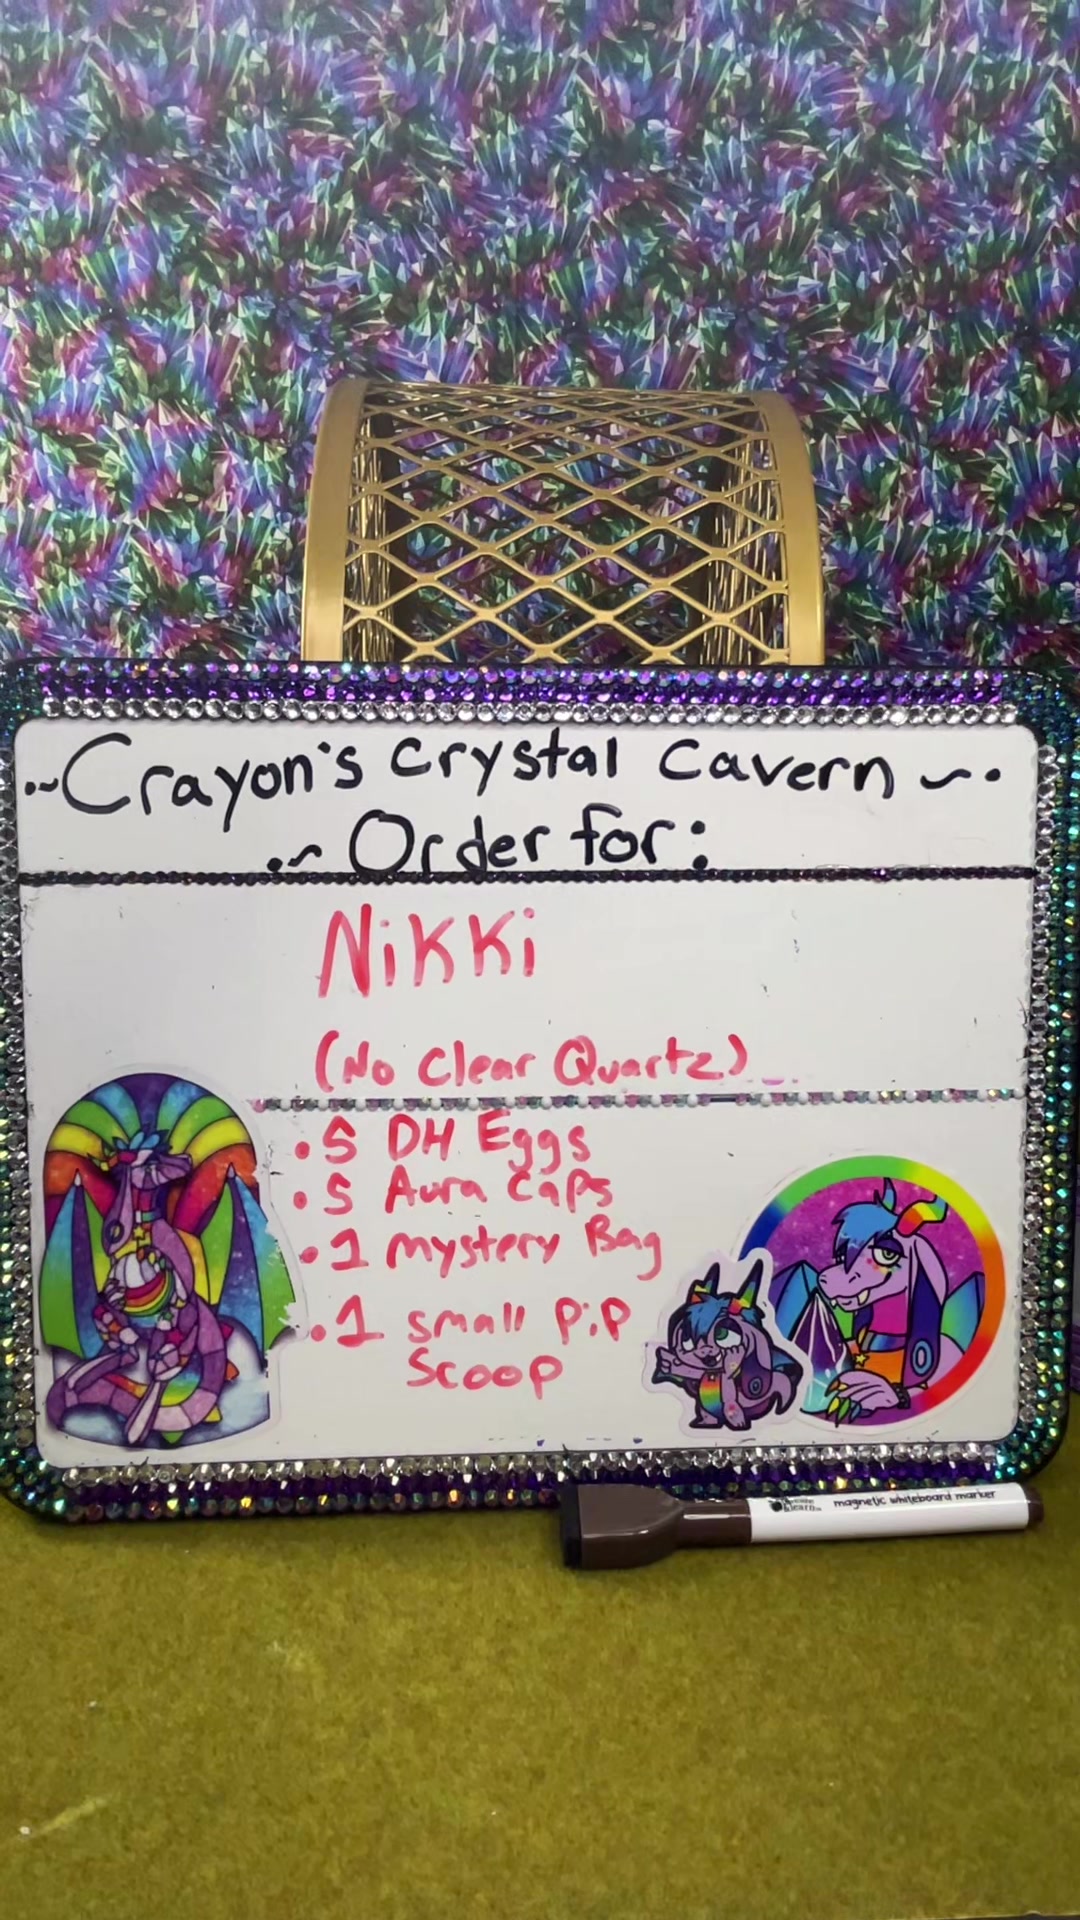 .~Crayon's Crystal Cavern ~.
.~ Order for:
Nikki
(No Clear Quartz)
• 5 DH Eggs
• 5 Aura Caps
• 1 mystery Bag
• 1 small Pip
Scoop
& learn
magnetic whiteboard marker